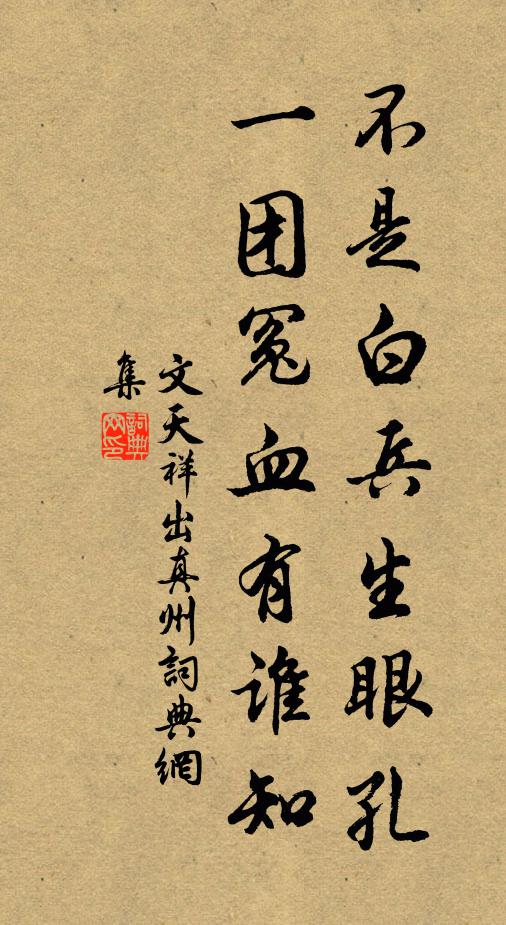 不是白兵生眼孔
一团冤血有谁知
文天祥出真州詞典網
集
詞典
网印